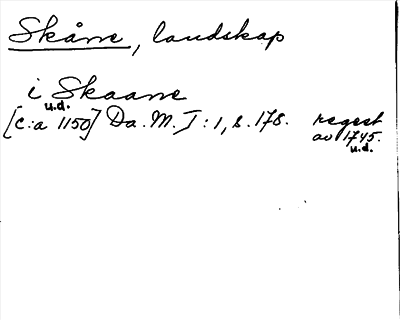 Skåne, landskap
i Skaane
u.d.
[c:a 1150] Da. M. I : 1, s. 178. regest
av 1745.
u.d.